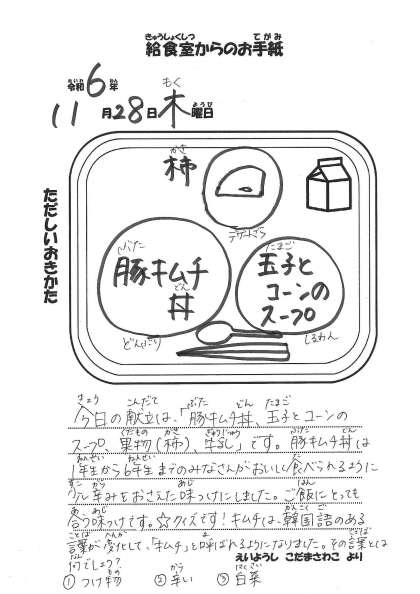 きゅうしょくしつ てがみ
給食室からのお手紙
れいわ ねん
令和6年
もく
11月28日木曜日
ようび
ただしいおきかた
かき
柿
デザートざら
ぶた
豚キムチ
どん
丼
どんぶり
たまご
玉子と
コーンの
スープ
しるわん
きょう こんだて ぶた どん たまご
今日の献立は、「豚キムチ丼、玉子とコーンの
くだもの かき ぎゅうにゅう ぶた どん
スープ、果物(柿)、牛乳」です。豚キムチ丼は
ねんせい ねんせい た
1年生から6年生までのみなさんがおいしく食べられるように
すこ から あじ はん
少し辛みをおさえた味つけにしました。ご飯にとっても
あ あじ かんこくご
合う味つけです。☆クイズです!キムチは、韓国語のある
ことば へんか よ ことば
言葉が変化して、「キムチ」と呼ばれるようになりました。その言葉とは
なん
何でしょう? えいようし こだまさわこ より
もの から はくさい
①つけ物 ②辛い ③白菜